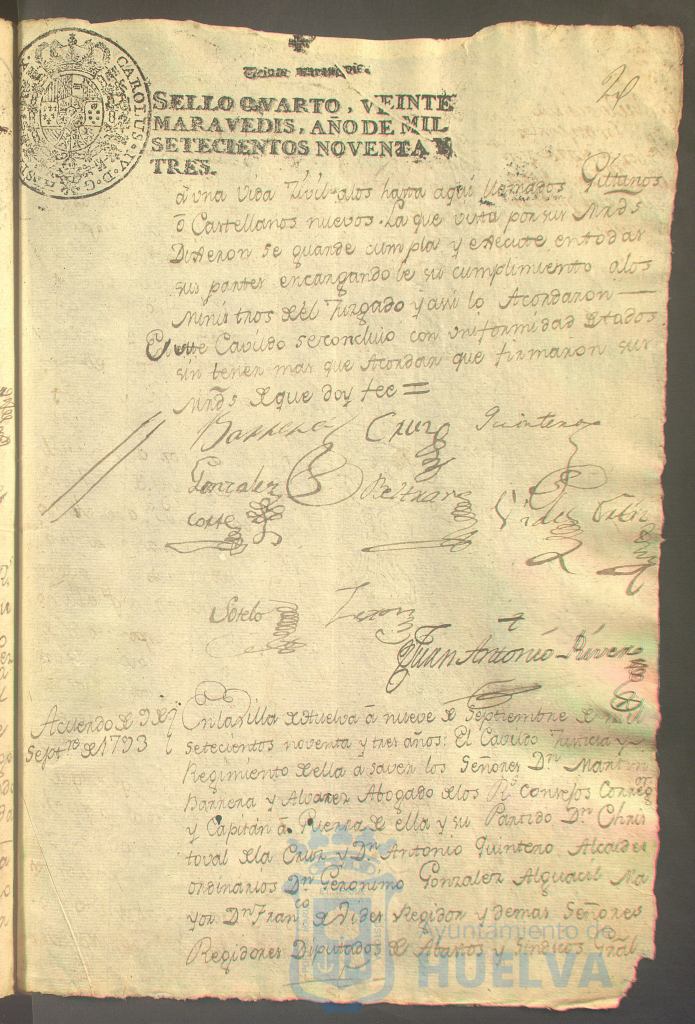 20
SELLO QVARTO, VEINTE
MARAVEDIS, AÑO DE MIL
SETECIENTOS NOVENTA Y
TRES.
CAROLUS IV D. G.
á una vida Zivil alos hasta aqui llamados Gittanos
ó Castellanos nuevos. La que vista por sus Mrds
Dixeron se guarde cumpla y execute en todas
sus partes encargandole su cumplimiento alos
Ministros del Juzgado y asi lo Acordaron
Este Cavildo se concluio con uniformidad de todos
sin tener mas que Acordar que firmaron sus
Mrds de que doy fee =
Barrera Cruz Quintero
Gonzalez Beltran Vides
corte
Sotelo
Juan Antonio Rivera
Acuerdo de 9 de
Septre de 1793
En la villa de Huelva á nueve de Septiembre de mil
setecientos noventa y tres años: El Cavildo Justicia y
Regimiento de ella á saver los Señores Dn Martin
Barrera y Alvarez Abogado de los Rs Consejos Correg
y Capitán á Guerra de ella y su Partido Dn Chris
toval de la Cruz y Dn Antonio Quintero Alcaldes
ordinarios Dn Geronimo Gonzalez Alguacil Ma
yor Dn Franco de Vides Regidor y demas Señores
Regidores Diputados de Abastos y Sindicos Gral
Ayuntamiento de
HUELVA